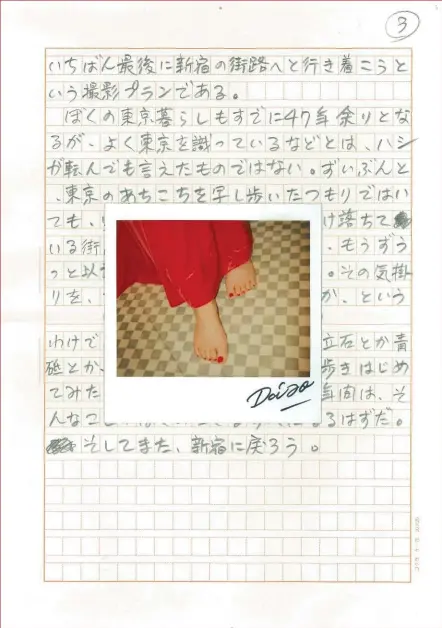 3
いちばん最後に新宿の街路へと行き着こうと
いう撮影プランである。
ぼくの東京暮らしもすでに47年余りとな
るが、よく東京を識っているなどとは、ハシ
が転んでも言えたものではない。ずいぶんと
、東京のあちこちを写し歩いたつもりではい
ても、
け落ちて
いる街
、もうずう
っと以
。その気掛
りを、
か、という
わけで
立石とか青
砥とか、
歩きはじめ
てみた
年間は、そ
んなこ
るはずだ。
そしてまた、新宿に戻ろう。
Daido